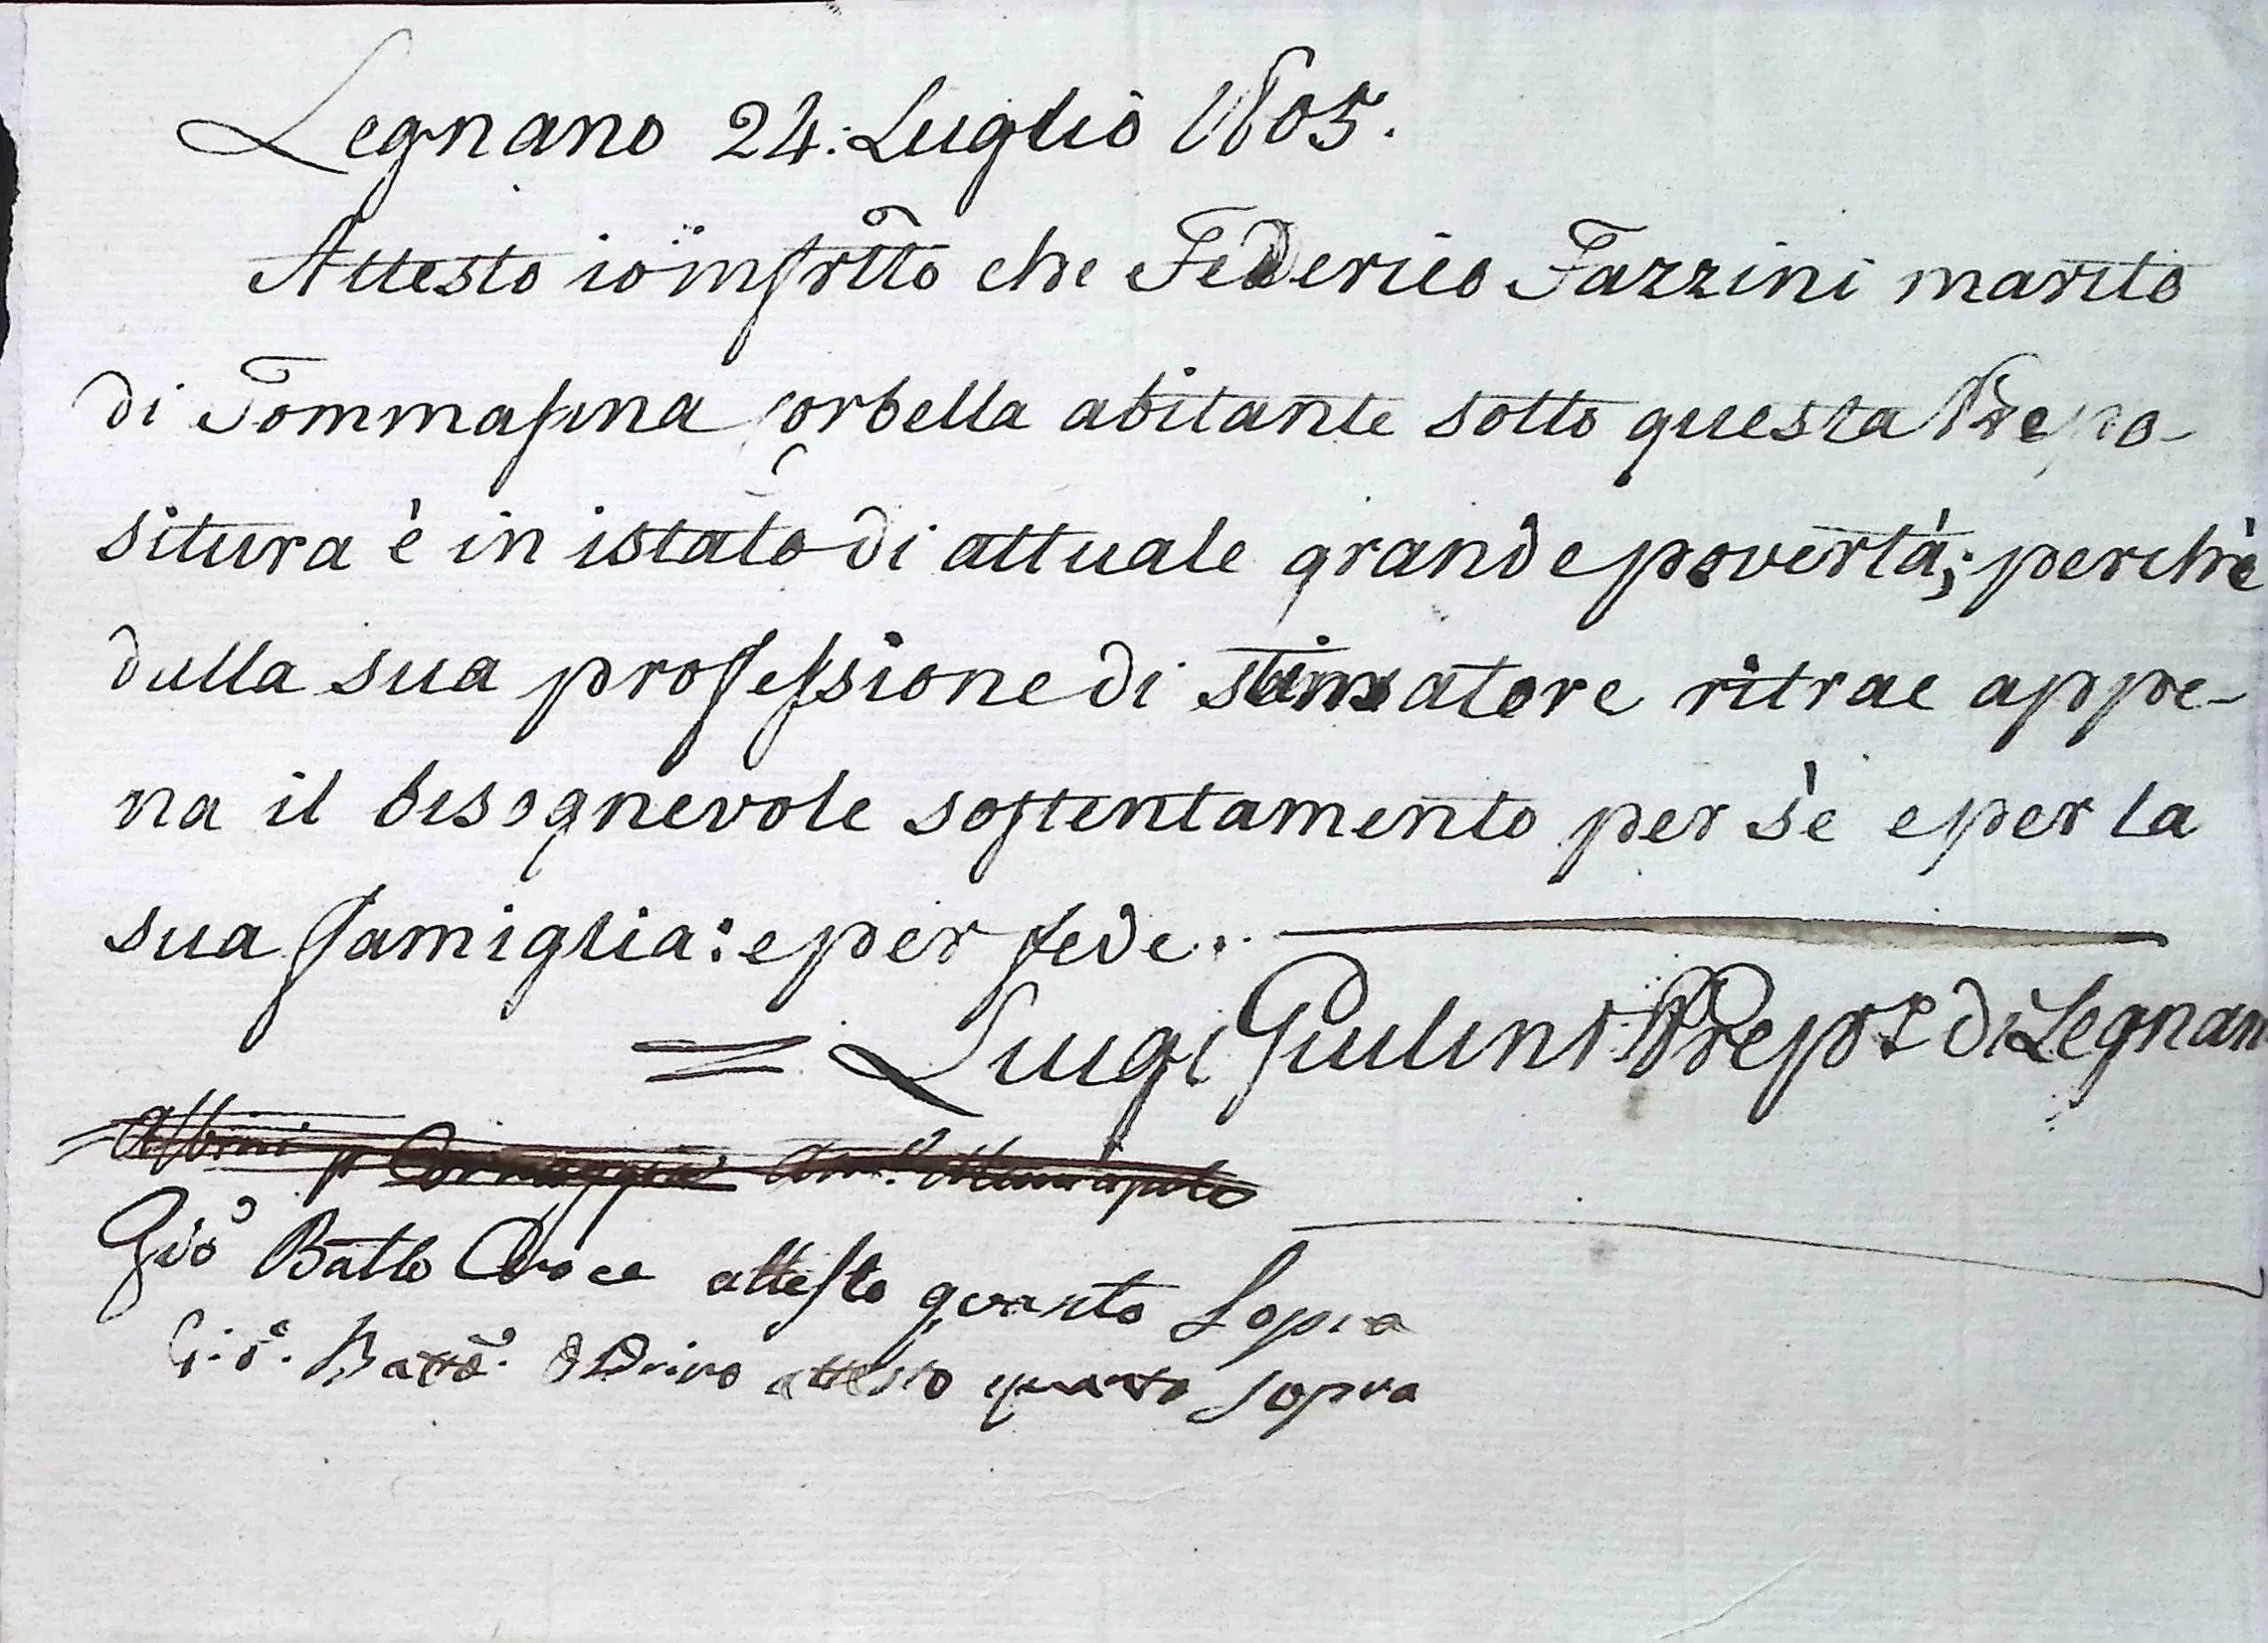 Legnano 24: Luglio 1805.
Attesto io infrtto che Federico Fazzini marito
di Tommasina Corbella abitante sotto questa Prepo-
situra è in istato di attuale grande povertà; perchè
dalla sua professione di stimatore ritrae appe-
na il bisognevole sostentamento per sè e per la
sua famiglia: e per fede.
= Luigi Giulini Prepto di Legnan
Gio Batta Croce attesto quanto Sopra
Gio. Batta. attesto quanto sopra